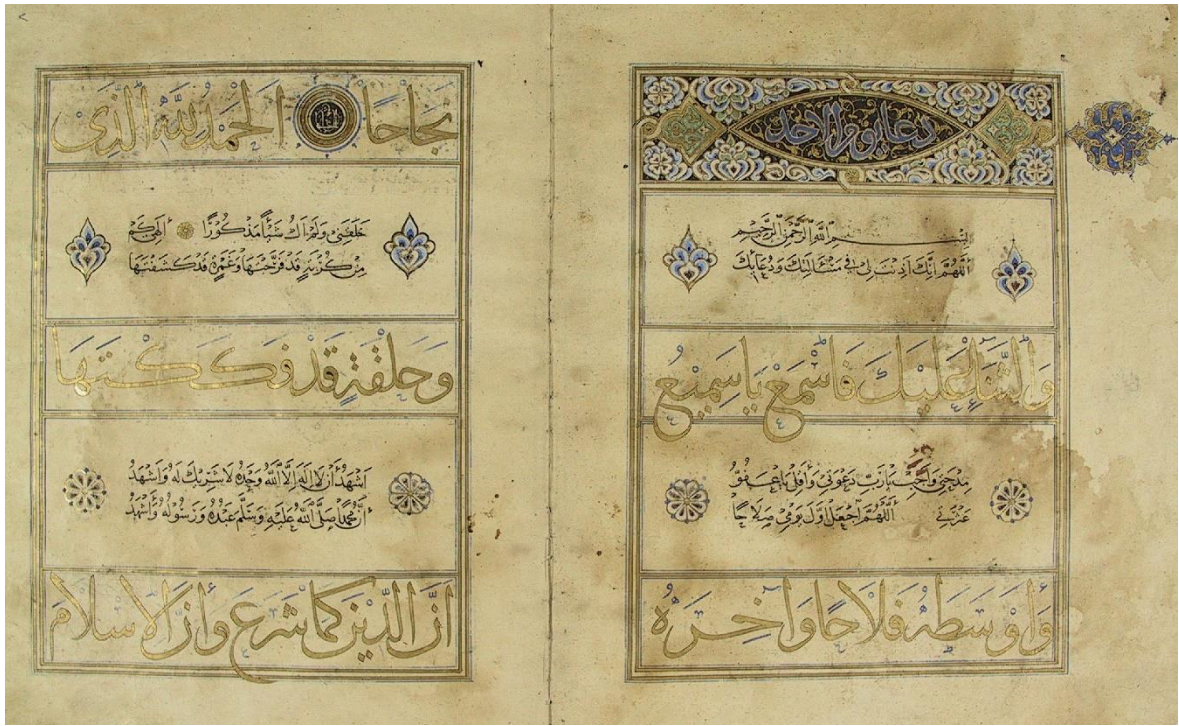 دعا يوم الاحد
بِسْمِ اللهِ الرَّحْمٰنِ الرَّحِيمِ
اَللّٰهُمَّ اِنَّكَ اَذِنْتَ لِي فِي مَسْأَلَتِكَ وَدُعَايِكَ
وَالثَّنَاءِ عَلَيْكَ فَاسْمَعْ يَا سَمِيعُ
مِدْحَتِي وَاَجِبْ يَا رَبِّ دَعْوَتِي وَأَقِلْ يَا عَفُوُّ
عَثْرَتِي اَللّٰهُمَّ اجْعَلْ اَوَّلَ يَوْمِي صَلَاحًا
وَأَوْسَطَهُ فَلَاحًا وَآخِرَهُ
نَجَاحًا الْحَمْدُ لِلّٰهِ الَّذِي
خَلَقَنِي وَلَمْ اَكُ شَيْأً مَذْكُورًا اِلٰهِي كَمْ
مِنْ كُرْبَةٍ قَدْ فَرَّجْتَهَا وَغَمْرَةٍ قَدْ كَشَفْتَهَا
وَحَلْقَةٍ قَدْ فَكَكْتَهَا
اَشْهَدُ أَنْ لَا اِلٰهَ اِلَّا اللهُ وَحْدَهُ لَا شَرِيكَ لَهُ وَاَشْهَدُ
أَنَّ مُحَمَّدًا صَلَّى اللهُ عَلَيْهِ وَسَلَّمَ عَبْدُهُ وَرَسُولُهُ وَأَشْهَدُ
اَنَّ الدِّينَ كَمَا شَرَعَ وَأَنَّ الْاِسْلَامَ